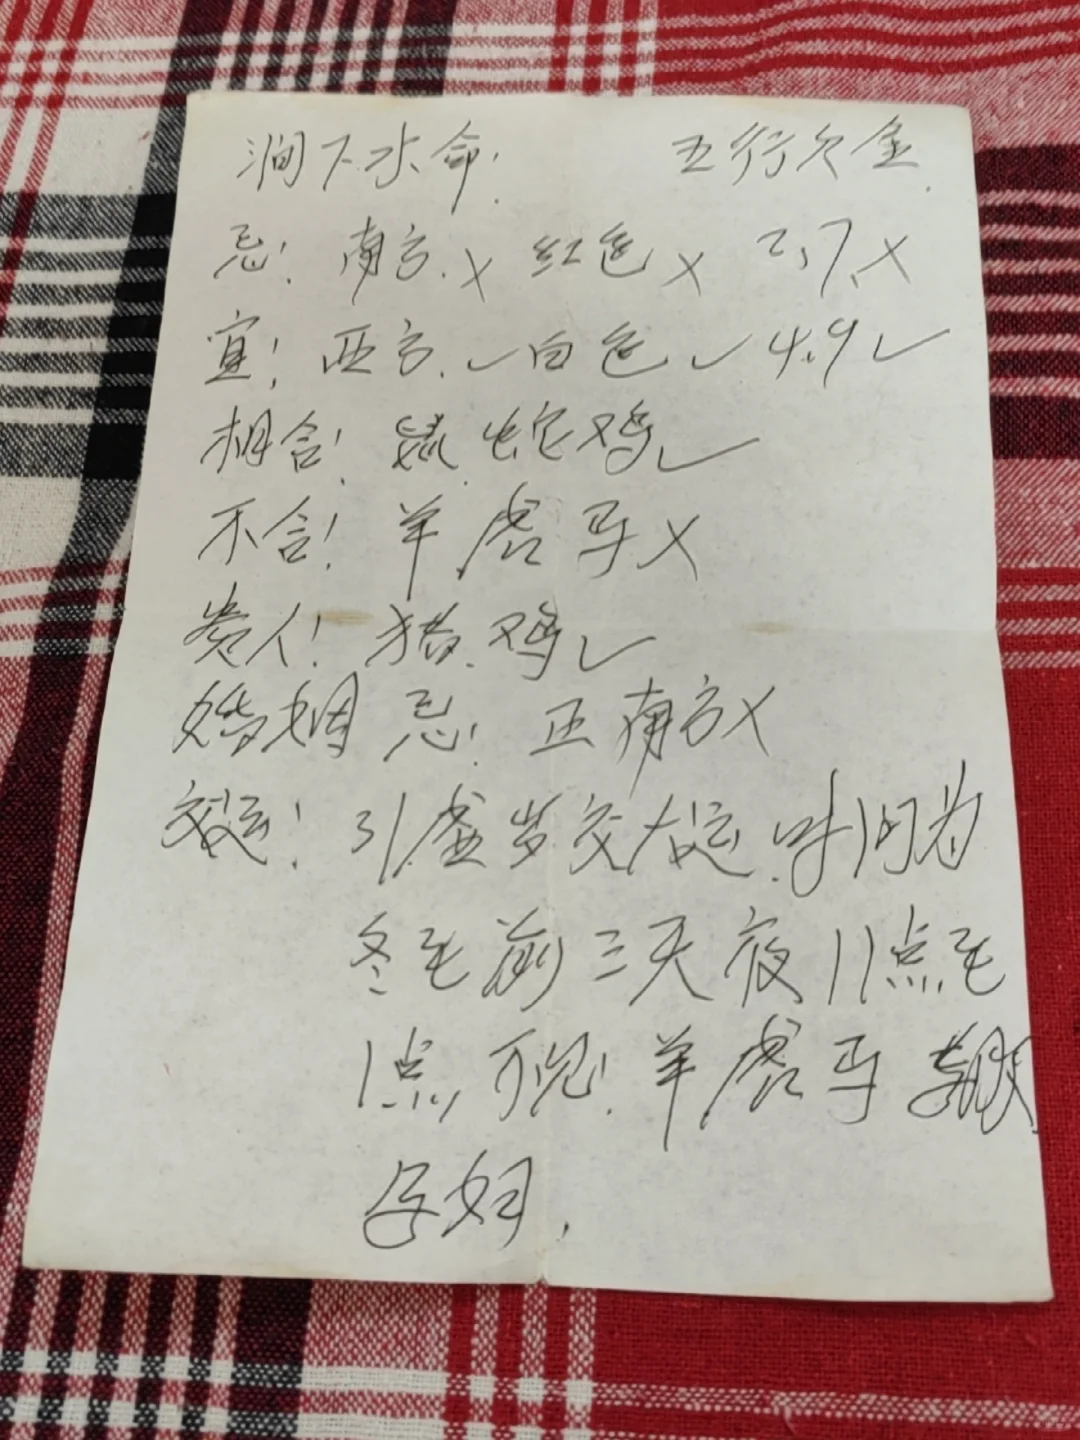 涧下水命. 五行欠金.
忌! 南方.× 红色× 2.7.×
宜! 西方.✓白色✓4.9✓
相合! 鼠.蛇鸡✓
不合! 羊.虎马×
贵人! 猪.鸡✓
婚姻忌! 正南方×
交运! 31.虚岁交大运.时间为
冬至前三天夜11点至
1点,忌! 羊.虎马
孕妇.